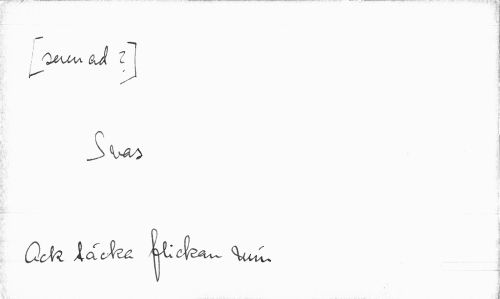 [serenad?]
Svas
Ack täcka flickan min